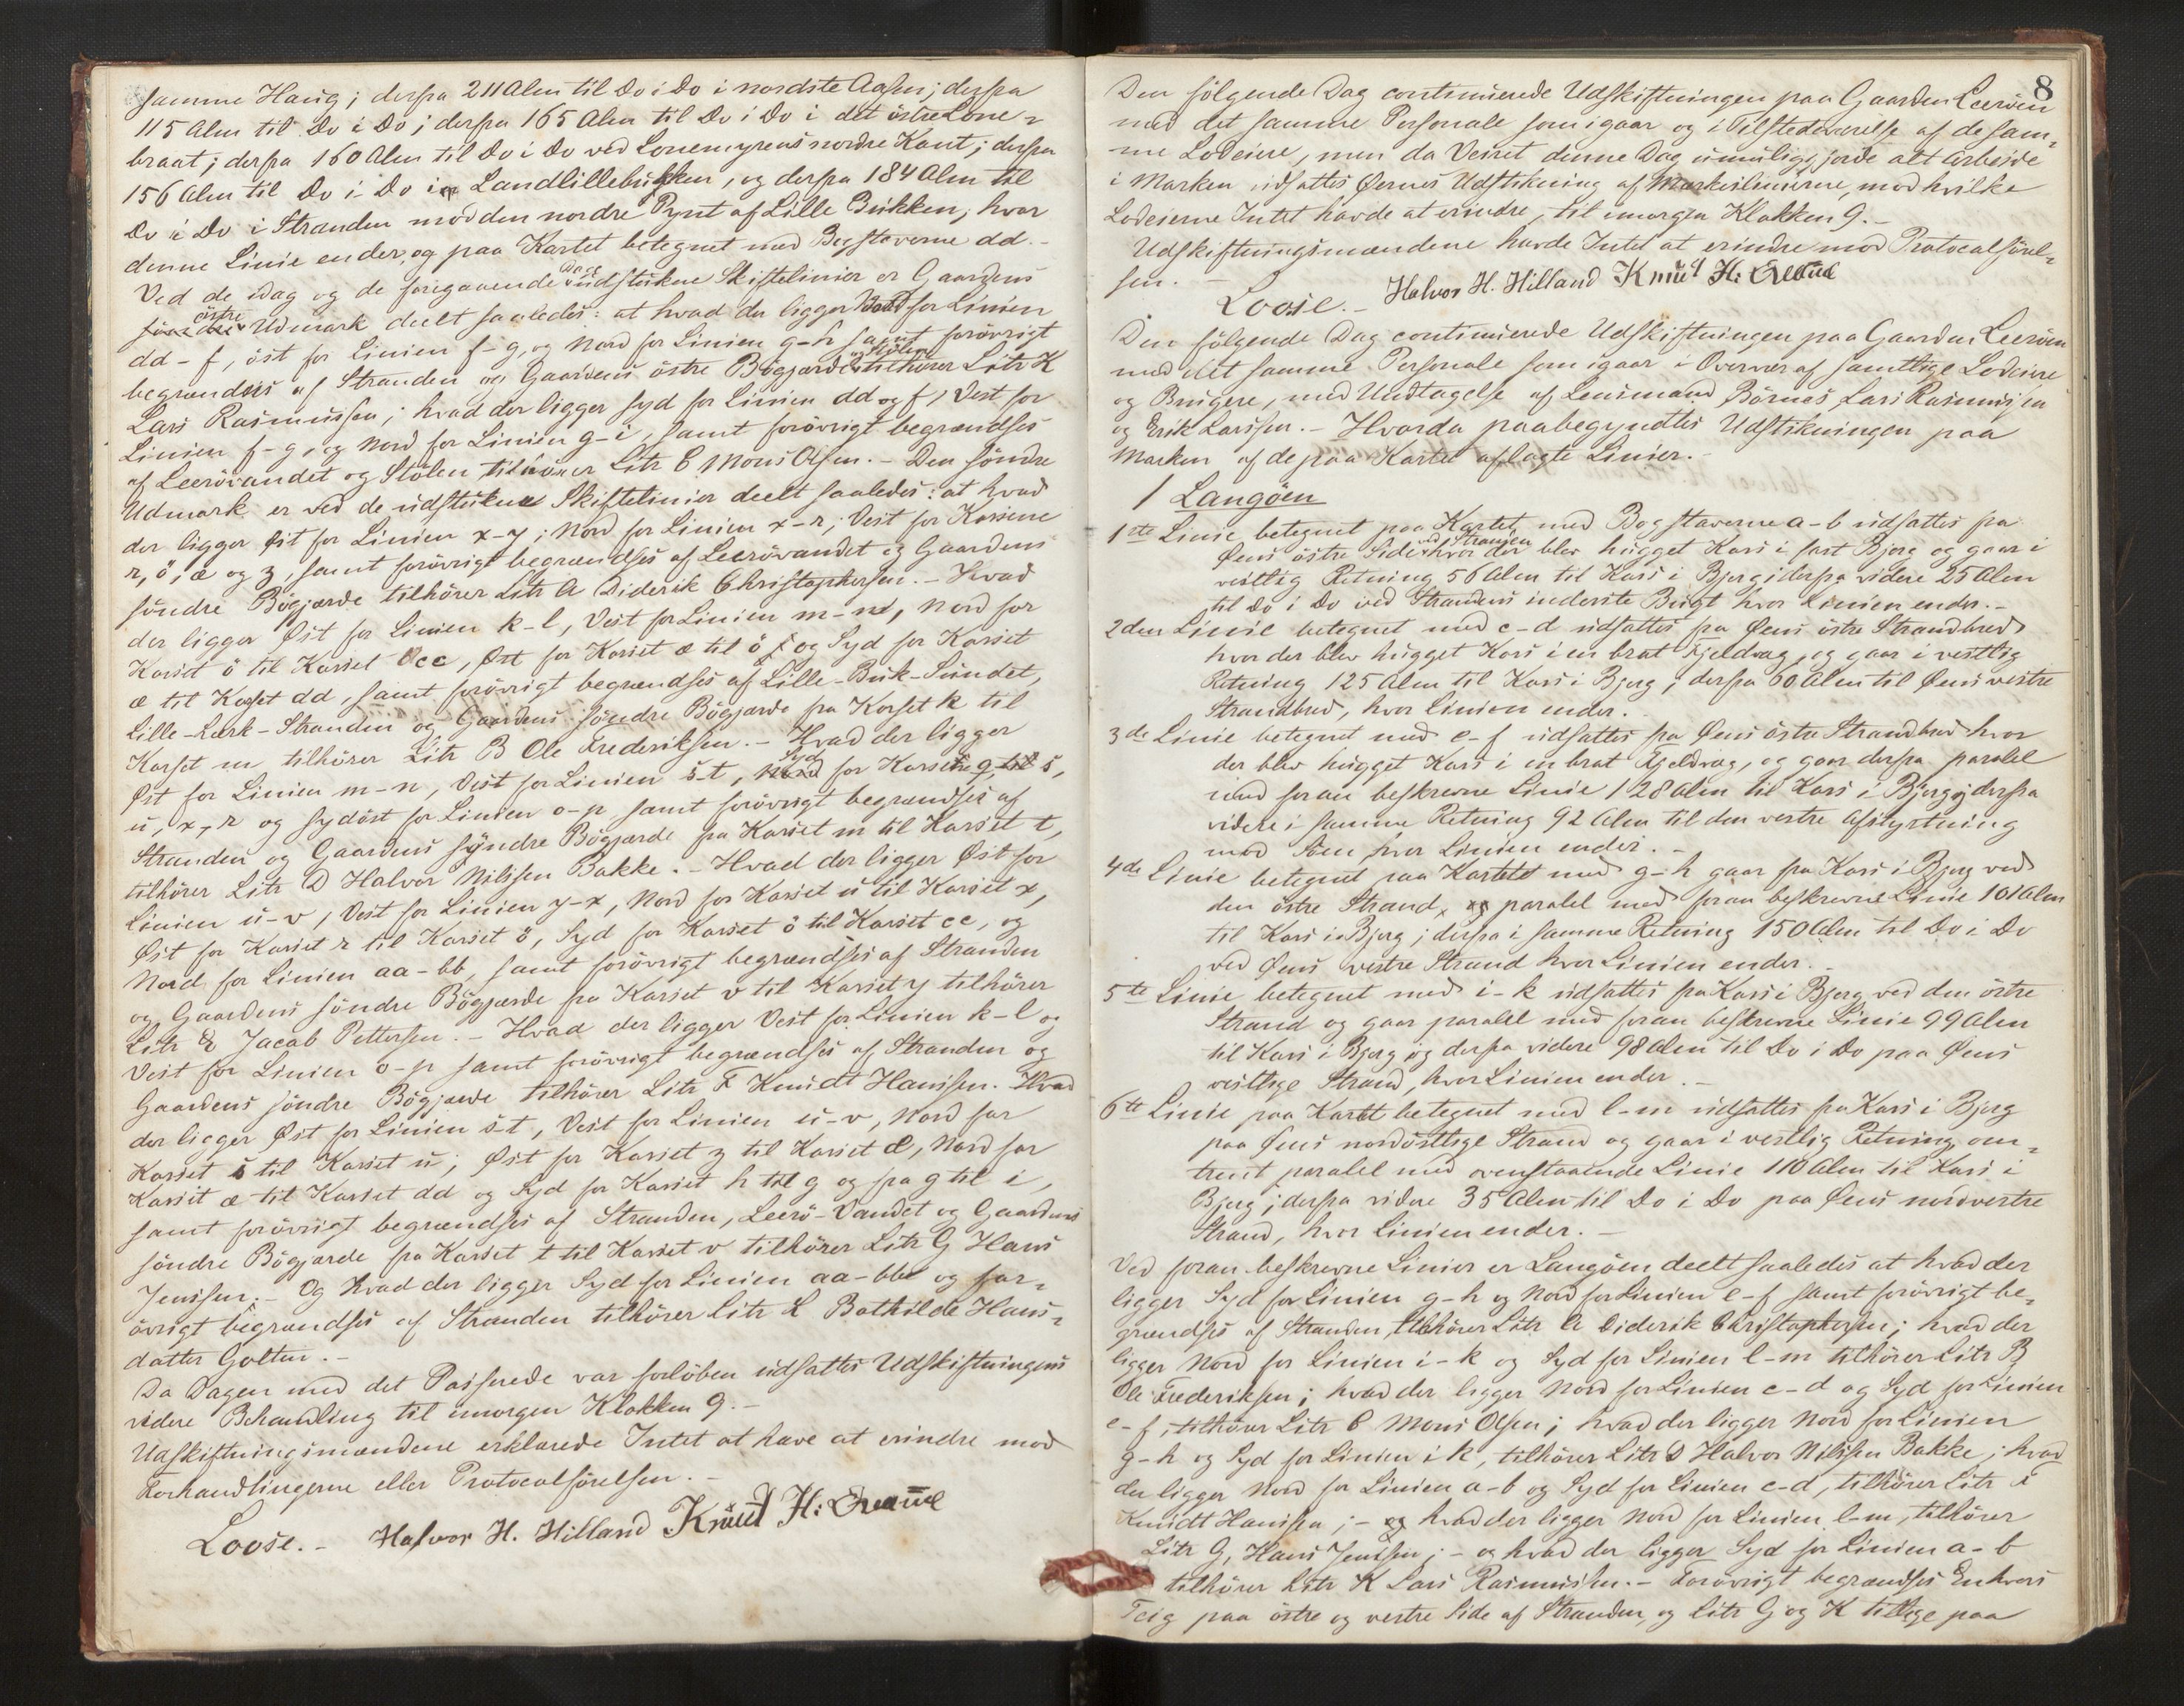 samme Haug; derfra 211 Alen til Do i Do i nordste Aasen; derfra
115 Alen til Do i Do; derfra 165 Alen til Do i Do i det östre Lone-
braat; derfra 160 Alen til Do i Do ved Lonemyrens nordre Kant; derfra
156 Alen til Do i Do i Landlillebukken, og derfra 184 Alen til
Do i Do i Stranden mod den nordre Pynt af Lille Bukken, hvor
denne Linie ender, og paa Kartet betegnet med Bogstaverne dd.-
Ved de idag og de foregaaende Dage udstukne Skiftelinier er Gaardens
östre Udmark deelt saaledes: at hvad der ligger Nord for Linien
dd-f, öst for Linien f-g, og Nord for Linien g-h samt forövrigt
begrændses af Stranden og Gaardens östre Bögjærde og Stölen tilhörer Litr K
Lars Rasmussen; hvad der ligger syd for Linien dd og f, Vest for
Linien f-g, og Nord for Linien g-i, samt forövrigt begrændses
af Leerövandet og Stölen tilhörer Litr C Mons Olsen.- Den söndre
Udmark er ved de udstukne Skiftelinier deelt saaledes: at hvad
der ligger Öst for Linien x-y; Nord for Linien x-z; Vest for Korsene
z, ö, æ og z, samt forövrigt begrændses af Leerövandet og Gaardens
söndre Bögjærde tilhörer Litr A Diderik Christophersen.- Hvad
der ligger Öst for Linien k-l, Vest for Linien m-n, Nord for
Korset ö til Korset cc, Öst for Korset æ til ö, og Syd for Korset
æ til Korset dd, samt forövrigt begrændses af Lille-Buk-Sundet,
Lille-Lurk-Stranden og Gaardens söndre Bögjærde fra Korset k til
Korset m tilhörer Litr B Ole Frederiksen.- Hvad der ligger
Öst for Linien m-n, Vest for Linien s-t, Syd for Korsene q til s,
u, x, z og sydöst for Linien o-p samt forövrigt begrændses af
Stranden og Gaardens syndre Bögjærde fra Korset m til Korset t,
tilhörer Litr D Halvor Nilssen Bakke.- Hvad der ligger Öst for
Linien u-v, Vest for Linien y-x, Nord for Korset u til Korset x,
Öst for Korset z til Korset ö, Syd for Korset ö til Korset cc, og
Nord for Linien aa-bb, samt forövrigt begrændses af Stranden
og Gaardens söndre Bögjærde fra Korset v til Korset y tilhörer
Litr E Jacob Pettersen.- Hvad der ligger Vest for Linien k-l og
Vest for Linien o-p samt forövrigt begrændses af Stranden og
Gaardens söndre Bögjærde tilhörer Litr F Knudt Hanssen. Hvad
der ligger Öst for Linien s-t, Vest for Linien u-v, Nord for
Korset s til Korset u, Öst for Korset z til Korset æ, Nord for
Korset æ til Korset dd og Syd for Korset h til g og fra g til i,
samt forövrigt begrændses af Stranden, Leerö-Vandet og Gaardens
söndre Bögjærde fra Korset t til Korset v tilhörer Litr G Hans
Jenssen.- Og hvad der ligger Syd for Linien aa-bb og for-
övrigt begrændses af Stranden tilhörer Litr L Bothilde Hans-
datter Golten.-
Da Dagen med det Passerede var forlöben udsattes Udskiftningens
videre Behandling til imorgen Klokken 9.-
Udskiftningsmændene erklærede Intet at have at erindre mod
Forhandlingerne eller Protocolförelsen.-
Loose.- Halvor H. Hilland Knud H:
8
Den fölgende Dag continuerede Udskiftningen paa Gaarden Leeröen
med det samme Personale som igaar og i Tilstedeværelse af de sam-
me Lodeiere, men da Veiret denne Dag umuliggjorde alt Arbeide
i Marken udsattes Öernes Udstikning af Markeslinierne, mod hvilke
Lodeierne Intet havde at erindre, til imorgen Klokken 9.-
Udskiftningsmændene havde Intet at erindre mod Protocolförel-
sen.-
Loose.- Halvor H. Hilland Knud H:
Den fölgende Dag continuerede Udskiftningen paa Gaarden Leeröen
med det samme Personale som igaar i Overvær af samtlige Lodeiere
og Brugere, med Undtagelse af Lensmand Börnes, Lars Rasmussen
og Erik Larssen.- Hvorda paabegyndtes Udstikningen paa
Marken af de paa Kartet aflagte Linier.-
1 Langöen
1ste Linie betegnet paa Kartet med Bogstaverne a-b udsattes fra
Öens östre Side ved Stranden hvor der blev hugget Kors i fast Bjerg og gaar i
vestlig Retning 56 Alen til Kors i Bjerg; derfra videre 25 Alen
til Do i Do ved Strandens inderste Bugt hvor Linien ender.-
2den Linie betegnet med c-d udsattes fra Öens östre Strandbred
hvor der blev hugget Kors i en brat Fjeldvæg, og gaar i vestlig
Retning 125 Alen til Kors i Bjerg; derfra 60 Alen til Öens vestre
Strandbred, hvor Linien ender.
3de Linie betegnet med e-f udsattes fra Öens östre Strandbred hvor
der blev hugget Kors i en brat Fjeldvæg, og gaar derfra paralel
med foran beskrevne Linie 128 Alen til Kors i Bjerg; derfra
videre i samme Retning 92 Alen til den vestre Afstyrtning
mod Söen, hvor Linien ender.-
4de Linie betegnet paa Kartet med g-h gaar fra Kors i Bjerg ved
den östre Strand, paralel med foran beskrevne Linie 101 Alen
til Kors i Bjerg; derfra i samme Retning 150 Alen til Do i Do
ved Öens vestre Strand hvor Linien ender.-
5te Linie betegnet med i-k udsattes fra Kors i Bjerg ved den östre
Strand og gaar paralel med foran beskrevne Linie 99 Alen
til Kors i Bjerg og derfra videre 98 Alen til Do i Do paa Öens
vestlige Strand, hvor Linien ender.-
6te Linie paa Kartet betegnet med l-m udsattes fra Kors i Bjerg
paa Öens nordöstlige Strand og gaar i vestlig Retning om-
trent paralel med ovenstaaende Linie 110 Alen til Kors i
Bjerg; derfra videre 35 Alen til Do i Do paa Öens nordvestre
Strand, hvor Linien ender.-
Ved foran beskrevne Linier er Langöen deelt saaledes at hvad der
ligger Syd for Linien g-h og Nord for Linien e-f samt forövrigt be-
grændses af Stranden, tilhörer Litr A Diderik Christophersen; hvad der
ligger Nord for Linien i-k og Syd for Linien l-m tilhörer Litr B
Ole Frederiksen; hvad der ligger Nord for Linien c-d og Syd for Linien
e-f, tilhörer Litr C Mons Olsen; hvad der ligger Nord for Linien
g-h og Syd for Linien i k, tilhörer Litr D Halvor Nilssen Bakke; hvad
der ligger Nord for Linien a-b og Syd for Linien c-d, tilhörer Litr F
Knudt Hanssen;- og hvad der ligger Nord for Linien l-m, tilhörer
Litr G, Hans Jenssen;- og hvad der ligger Syd for Linien a-b
tilhörer Litr K Lars Rasmussen.- Forövrigt begrændses Enhvers
Teig paa östre og vestre Side af Stranden, og Litr G og K tillige paa